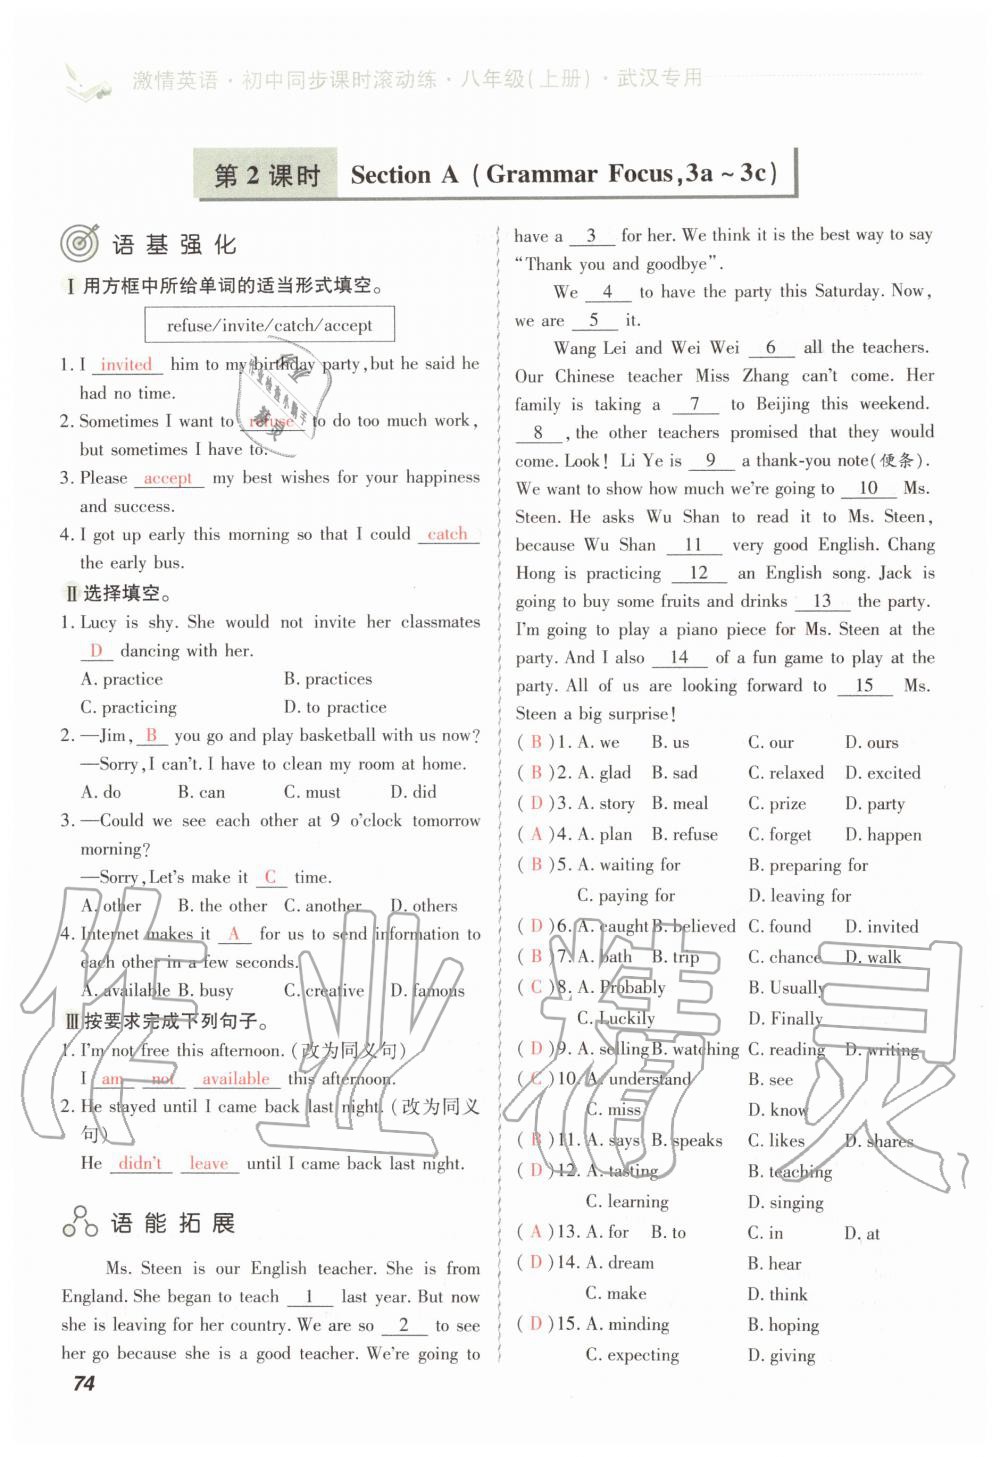 激情英语·初中同步课时滚动练·八年级(上册)·武汉专用
第2课时 Section A (Grammar Focus,3a~3c)
语基强化
Ⅰ 用方框中所给单词的适当形式填空。
refuse/invite/catch/accept
1. I invited him to my birthday party,but he said he
had no time.
2. Sometimes I want to refuse to do too much work,
but sometimes I have to.
3. Please accept my best wishes for your happiness
and success.
4. I got up early this morning so that I could catch
the early bus.
Ⅱ 选择填空。
1. Lucy is shy. She would not invite her classmates
D dancing with her.
A. practice B. practices
C. practicing D. to practice
2. —Jim, B you go and play basketball with us now?
—Sorry,I can't. I have to clean my room at home.
A. do B. can C. must D. did
3. —Could we see each other at 9 o'clock tomorrow
morning?
—Sorry,Let's make it C time.
A. other B. the other C. another D. others
4. Internet makes it A for us to send information to
each other in a few seconds.
A. available B. busy C. creative D. famous
Ⅲ 按要求完成下列句子。
1. I'm not free this afternoon. (改为同义句)
I am not available this afternoon.
2. He stayed until I came back last night. (改为同义
句)
He didn't leave until I came back last night.
语能拓展
Ms. Steen is our English teacher. She is from
England. She began to teach 1 last year. But now
she is leaving for her country. We are so 2 to see
her go because she is a good teacher. We're going to
74
have a 3 for her. We think it is the best way to say
“Thank you and goodbye”.
We 4 to have the party this Saturday. Now,
we are 5 it.
Wang Lei and Wei Wei 6 all the teachers.
Our Chinese teacher Miss Zhang can't come. Her
family is taking a 7 to Beijing this weekend.
8 ,the other teachers promised that they would
come. Look! Li Ye is 9 a thank-you note(便条).
We want to show how much we're going to 10 Ms.
Steen. He asks Wu Shan to read it to Ms. Steen,
because Wu Shan 11 very good English. Chang
Hong is practicing 12 an English song. Jack is
going to buy some fruits and drinks 13 the party.
I'm going to play a piano piece for Ms. Steen at the
party. And I also 14 of a fun game to play at the
party. All of us are looking forward to 15 Ms.
Steen a big surprise!
( B )1. A. we B. us C. our D. ours
( B )2. A. glad B. sad C. relaxed D. excited
( D )3. A. story B. meal C. prize D. party
( A )4. A. plan B. refuse C. forget D. happen
( B )5. A. waiting for B. preparing for
C. paying for D. leaving for
( D )6. A. caught B. believed C. found D. invited
( B )7. A. path B. trip C. chance D. walk
( C )8. A. Probably B. Usually
C. Luckily D. Finally
( D )9. A. selling B. watching C. reading D. writing
( C )10. A. understand B. see
C. miss D. know
( B )11. A. says B. speaks C. likes D. shares
( D )12. A. tasting B. teaching
C. learning D. singing
( A )13. A. for B. to C. in D. at
( D )14. A. dream B. hear
C. make D. think
( D )15. A. minding B. hoping
C. expecting D. giving
作业精灵